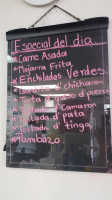 Especial del dia
*Carne Asada
*Mojarra Frita
*Enchiladas Verdes
chicharon
*Tostada d' pata
*Tostada d' tinga
*Pambazo